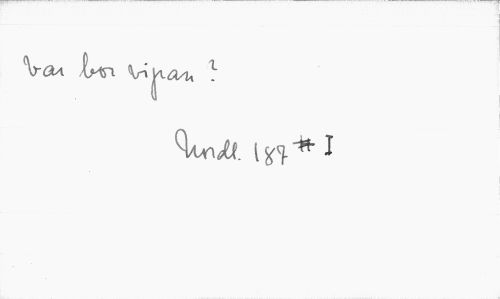 Var bor vipan?
Nordl. 187 # I